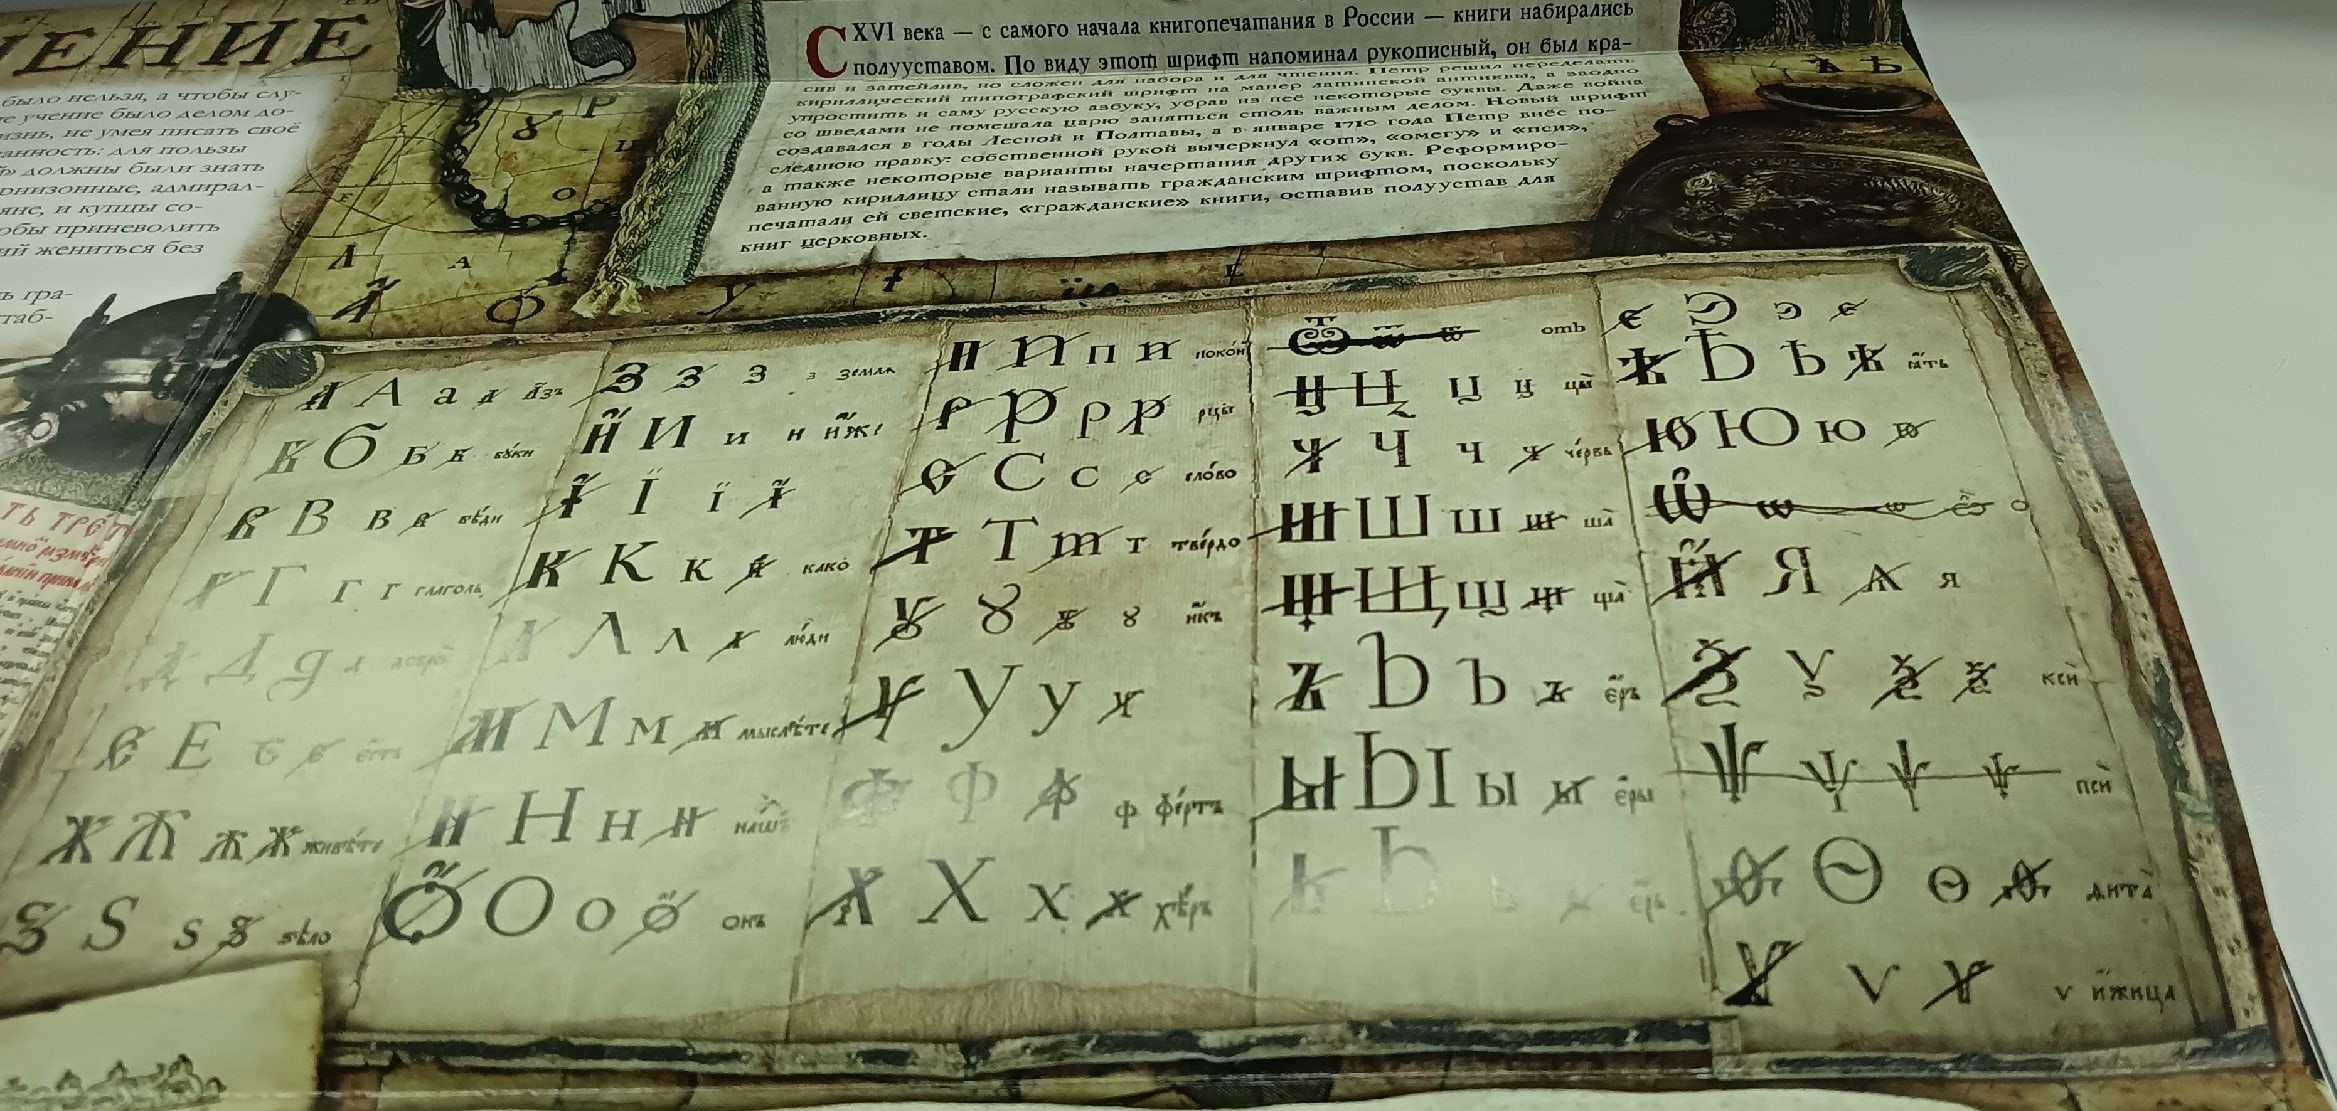 ЧЕНИЕ
было нельзя, а чтобы слу-
учение было делом до-
изнь, не умея писать своё
анность: для пользы
должны были знать
рнизонные, адмирал-
яне, и купцы со-
обы приневолить
ий жениться без
ь гра-
таб-
ТЬ ТРЕТ
С XVI века — с самого начала книгопечатания в России — книги набирались
полууставом. По виду этот шрифт напоминал рукописный, он был кра-
сив и затейлив, но сложен для набора и для чтения. Пётр решил переделать
кириллический типографский шрифт на манер латинской антиквы, а заодно
упростить и саму русскую азбуку, убрав из неё некоторые буквы. Даже война
со шведами не помешала царю заняться столь важным делом. Новый шрифт
создавался в годы Лесной и Полтавы, а в январе 1710 года Пётр внёс по-
следнюю правку: собственной рукой вычеркнул «от», «омегу» и «пси»,
а также некоторые варианты начертания других букв. Реформиро-
ванную кириллицу стали называть гражданским шрифтом, поскольку
печатали ей светские, «гражданские» книги, оставив полуустав для
книг церковных.
А А а а а҆́зъ
Б Б б б бꙋ́ки
В В в в вѣ́ди
Г Г г г глаголь
Д Д д д добро̀
Є Е є є є҆́сть
Ж Ж ж ж живѣ́те
Ѕ Ѕ ѕ ѕ ѕѣло̀
З З з з землѧ
И И и и и҆́же
Ї Ї ї ї
К К к к како
Л Л л л лю́ди
М М м м мыслѣ́те
Н Н н н на́шъ
О О о о онъ
П П п п поко́й
Р Р р р рцы̀
С С с с сло́во
Т Т т т тве́рдо
Ꙋ Ꙋ ꙋ ꙋ и҆́къ
У У у у
Ф Ф ф ф фе́ртъ
Х Х х х хѣ́ръ
Ѿ ѿ ѿ отъ
Ц Ц ц ц цы̀
Ч Ч ч ч че́рвь
Ш Ш ш ш ша̀
Щ Щ щ щ ща̀
Ъ Ъ ъ ъ є҆́ръ
Ы Ы ы ы є҆ры̀
Ь Ь ь ь є҆́рь
Є Э э є
Ѣ Ѣ ѣ ѣ ꙗ҆́ть
Ю Ю ю ю
Ѡ ѡ ѡ ѽ о
Ꙗ Я ѧ я
Ѯ Ѯ ѯ ѯ ксѝ
Ѱ Ѱ ѱ ѱ псѝ
Ѳ Ѳ ѳ ѳ ѳита̀
Ѵ Ѵ ѵ ѵ и҆́жица